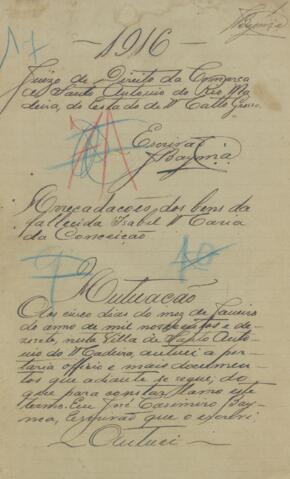 Bayma
17
— 1916 —
Juizo de Direito da Comarca
de Santo Antonio do Rio Ma
deira, do Estado de Matto Grosso.
Escrivão
J Bayma
Arrecadações dos bens da
fallecida Izabel Maria
da Conceição
Autuação
Aos cinco dias do mez de Janeiro
do anno de mil novecentos e de-
zeseis, nesta Villa de Santo Anto-
nio do Madeira, autuei a por-
taria officio e mais documen-
tos que adiante se segue, do
que para constar lavro este
termo. Eu José Casimiro Bay-
ma, Escrivão que o escrevi
— Autuei —